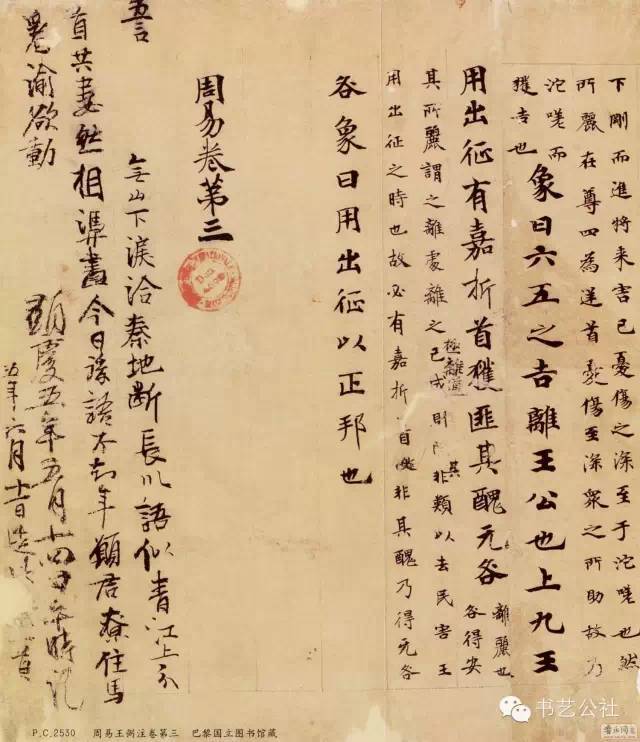 下剛而進将来吉已憂傷之深至于沱嗟也然
所麗在尊四為逆首憂傷至深衆之所助故乃
沱嗟而
獲吉也
象曰六五之吉離王公也上九王
用出征有嘉折首獲匪其醜无咎
離麗也
各得安
其所麗謂之離處離之已成則非類以去民害王
極離道
其
用出征之時也故必有嘉折首獲非其醜乃得无咎
各象曰用出征以正邦也
周易卷第三
山下淚洽秦地断長川語似青江上
首共然相今日語年願君住馬
渝欲動
顯慶五年五月十四日午時記
五年六月十
P.C.2530 周易王弼注卷第三 巴黎国立图书馆藏
书艺公社